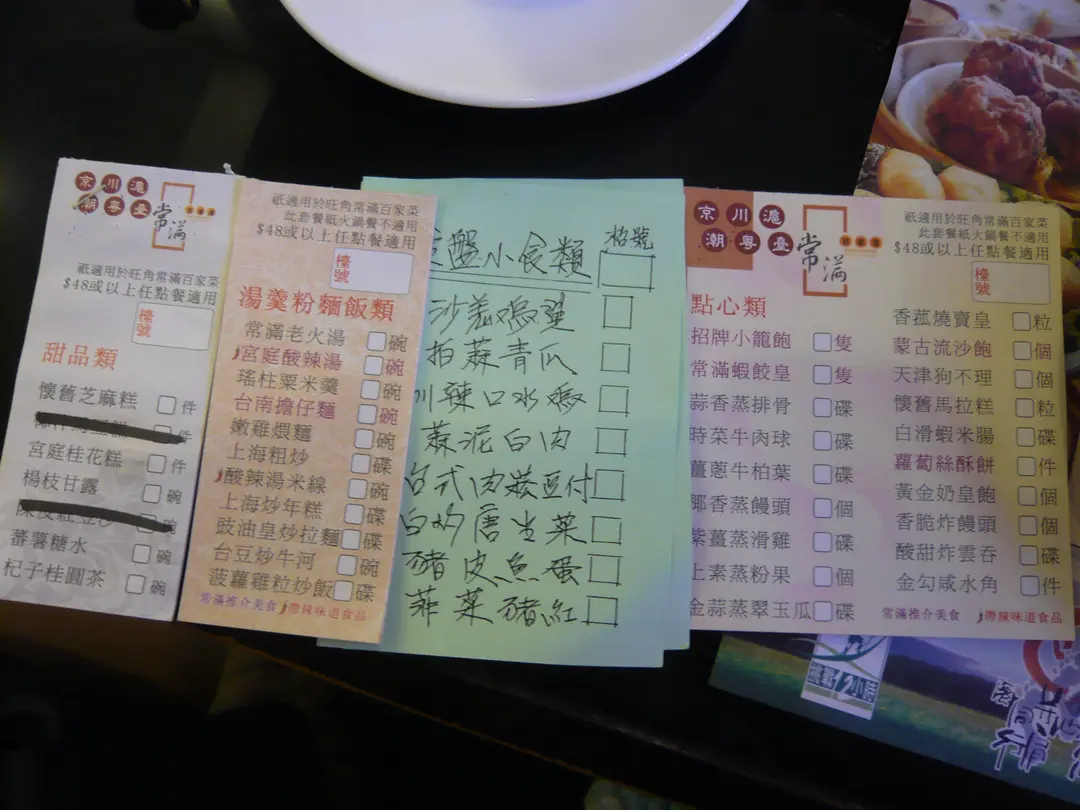 京川滬
潮粵臺
常滿
祇適用於旺角常滿百家菜
$48或以上任點餐適用
檯號
甜品類
懷舊芝麻糕 件
件
宮庭桂花糕 件
楊枝甘露 碗
碗
蕃薯糖水 碗
杞子桂圓茶 碗
祇適用於旺角常滿百家菜
此套餐紙火鍋餐不適用
$48或以上任點餐適用
檯號
湯羹粉麵飯類
常滿老火湯 碗
宮庭酸辣湯 碗
瑤柱粟米羹 碗
台南擔仔麵 碗
嫩雞煨麵 碗
上海粗炒 碟
酸辣湯米線 碗
上海炒年糕 碟
豉油皇炒拉麵 碟
台豆炒牛河 碗
菠蘿雞粒炒飯 碟
常滿推介美食 帶辣味道食品
盤小食類 枱號
沙羌鸡
拍蒜青瓜
川辣口水鸡
蒜泥白肉
台式肉崧豆付
白灼唐生菜
豬皮魚蛋
韮菜豬紅
京川滬
潮粵臺
常滿
祇適用於旺角常滿百家菜
此套餐紙火鍋餐不適用
$48或以上任點餐適用
檯號
點心類
招牌小籠飽 隻
常滿蝦餃皇 隻
蒜香蒸排骨 碟
時菜牛肉球 碟
薑蔥牛柏葉 碟
椰香蒸饅頭 個
紫薑蒸滑雞 碟
上素蒸粉果 個
金蒜蒸翠玉瓜 碟
香菰燒賣皇 粒
蒙古流沙飽 個
天津狗不理 個
懷舊馬拉糕 粒
白滑蝦米腸 碟
蘿蔔絲酥餅 件
黃金奶皇飽 個
香脆炸饅頭 個
酸甜炸雲吞 碟
金勾咸水角 件
常滿推介美食 帶辣味道食品
小時